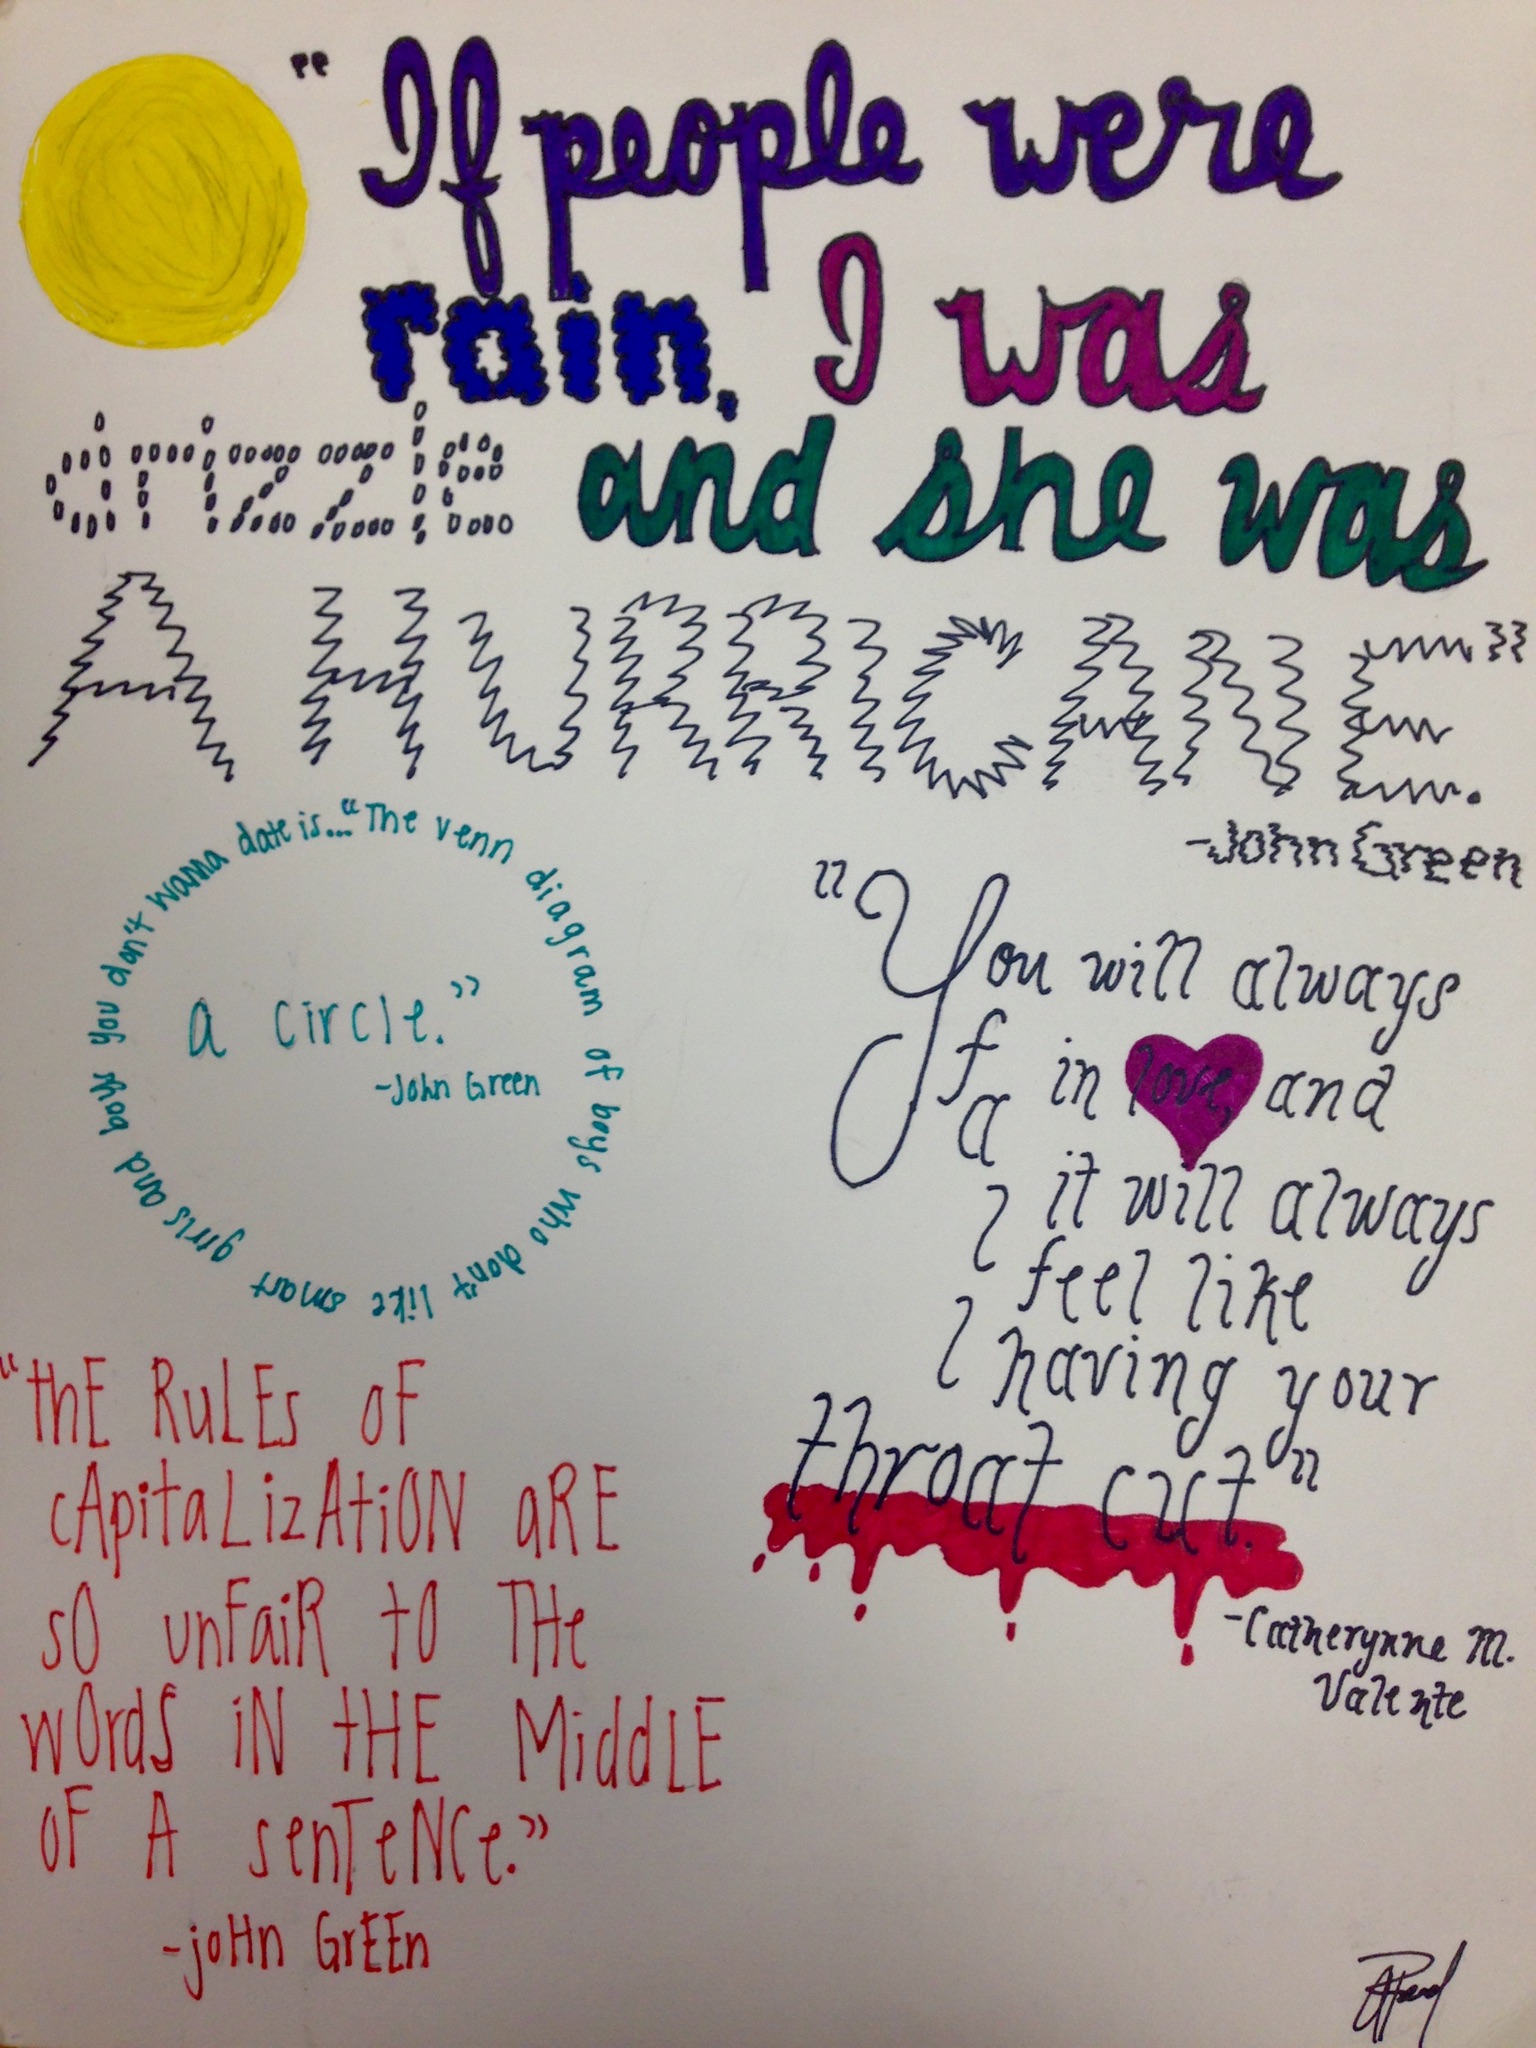 "If people were
rain, I was
drizzle and she was
A HURRICANE."
-John Green
"The venn diagram of boys who don't like smart girls and boys you don't wanna date is...
a circle."
-John Green
"You will always
fall in love, and
it will always
feel like
having your
throat cut."
-Catherynne M.
Valente
"thE RuLEs oF
cApitaLizAtiON aRE
sO unFaiR tO THe
wOrdS iN tHE MiddLE
OF A senTeNCe."
-joHn GrEEn